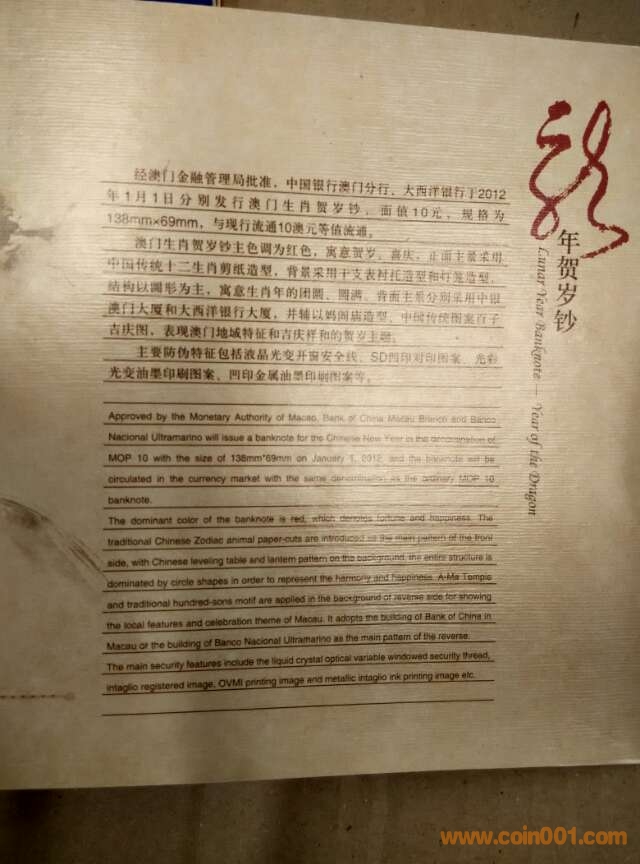 龙
年贺岁钞
Lunar Year Banknote — Year of the Dragon
经澳门金融管理局批准，中国银行澳门分行、大西洋银行于2012
年1月1日分别发行澳门生肖贺岁钞，面值10元，规格为
138mm×69mm，与现行流通10澳元等值流通。
澳门生肖贺岁钞主色调为红色，寓意贺岁、喜庆，正面主景采用
中国传统十二生肖剪纸造型，背景采用干支表衬托造型和灯笼造型，
结构以圆形为主，寓意生肖年的团圆、圆满。背面主景分别采用中银
澳门大厦和大西洋银行大厦，并辅以妈阁庙造型、中国传统图案百子
吉庆图，表现澳门地域特征和吉庆祥和的贺岁主题。
主要防伪特征包括液晶光变开窗安全线、SD凹印对印图案、光彩
光变油墨印刷图案、凹印金属油墨印刷图案等。
Approved by the Monetary Authority of Macao, Bank of China Macau Branch and Banco
Nacional Ultramarino will issue a banknote for the Chinese New Year in the denomination of
MOP 10 with the size of 138mm*69mm on January 1, 2012, and the banknote will be
circulated in the currency market with the same denomination as the ordinary MOP 10
banknote.
The dominant color of the banknote is red, which denotes fortune and happiness. The
traditional Chinese Zodiac animal paper-cuts are introduced as the main pattern of the front
side, with Chinese leveling table and lantern pattern on the background, the entire structure is
dominated by circle shapes in order to represent the harmony and happiness. A-Ma Temple
and traditional hundred-sons motif are applied in the background of reverse side for showing
the local features and celebration theme of Macau. It adopts the building of Bank of China in
Macau or the building of Banco Nacional Ultramarino as the main pattern of the reverse.
The main security features include the liquid crystal optical variable windowed security thread,
intaglio registered image, OVMI printing image and metallic intaglio ink printing image etc.
www.coin001.com